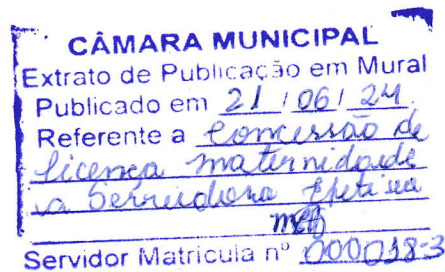 CÂMARA MUNICIPAL
Extrato de Publicação em Mural
Publicado em 21 / 06 / 24
Referente a Concessão de
licença maternidade
a Servidora Efetiva
Servidor Matricula nº 000018-3